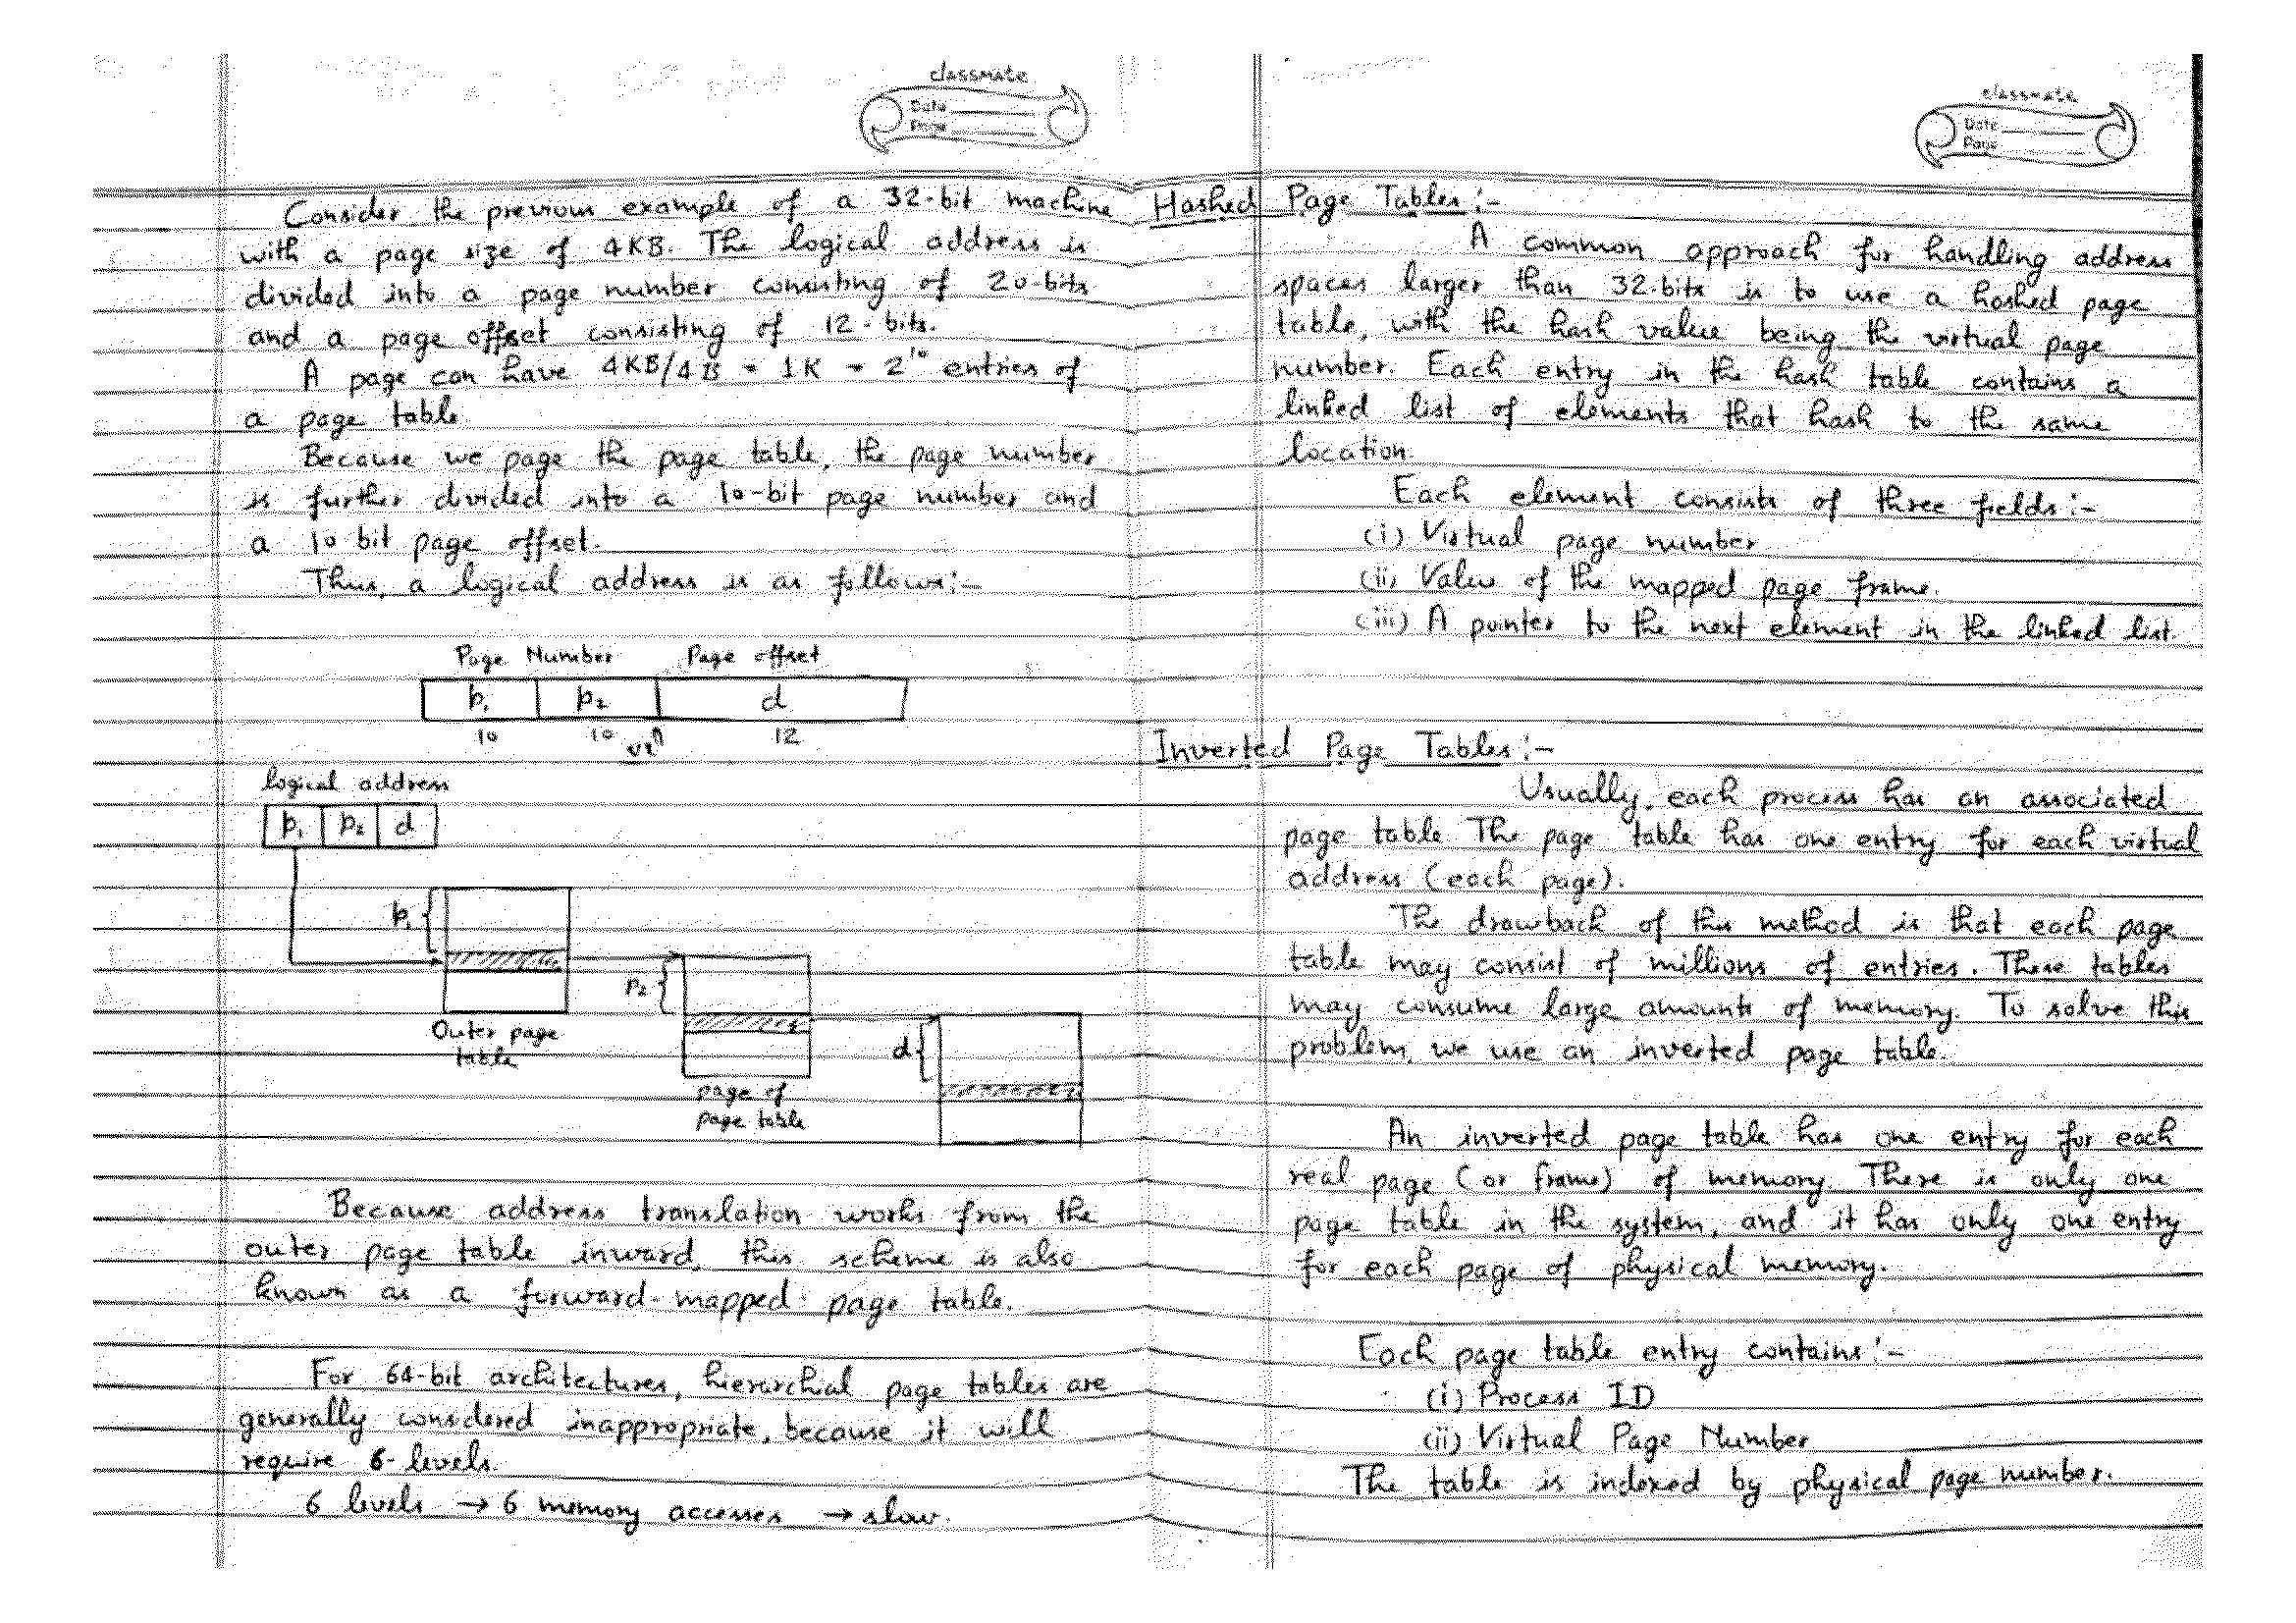 classmate
Date
Page
Consider the previous example of a 32-bit machine
with a page size of 4KB. The logical address is
divided into a page number consisting of 20-bits
and a page offset consisting of 12-bits.
A page can have 4KB/4B = 1K = 2^10 entries of
a page table.
Because we page the page table, the page number
is further divided into a 10-bit page number and
a 10 bit page offset.
Thus, a logical address is as follows:-
Page Number Page offset
p1 p2 d
10 10 12
logical address
p1 p2 d
p1
p2
Outer page
table
d
page of
page table
Because address translation works from the
outer page table inward, this scheme is also
known as a forward-mapped page table.
For 64-bit architectures, hierarchial page tables are
generally considered inappropriate, because it will
require 6-levels.
6 levels → 6 memory accesses → slow.
classmate
Date
Page
Hashed Page Tables:-
A common approach for handling address
spaces larger than 32-bits is to use a hashed page
table, with the hash value being the virtual page
number. Each entry in the hash table contains a
linked list of elements that hash to the same
location.
Each element consists of three fields:-
(i) Virtual page number
(ii) Value of the mapped page frame.
(iii) A pointer to the next element in the linked list.
Inverted Page Tables:-
Usually, each process has an associated
page table. The page table has one entry for each virtual
address (each page).
The drawback of this method is that each page
table may consist of millions of entries. These tables
may consume large amounts of memory. To solve this
problem, we use an inverted page table.
An inverted page table has one entry for each
real page (or frame) of memory. There is only one
page table in the system, and it has only one entry
for each page of physical memory.
Each page table entry contains:-
(i) Process ID
(ii) Virtual Page Number
The table is indexed by physical page number.